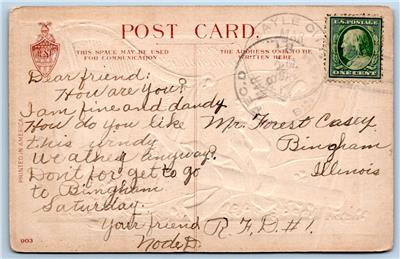 POST CARD.
THIS SPACE MAY BE
USED FOR
COMMUNICATION
THE ADDRESS ONLY TO BE
WRITTEN HERE.
U.S. POSTAGE
ONE CENT
REC'D
MAR
PRINTED IN AMERICA
Dear friend:
How are you?
I am fine and dandy
How do you like
this windy
weather anyway?
Don't for get to go
to Bingham
Saturday.
Your friend
Mr. Forest Casey
Bingham
Illinois
R.F.D. #1.
903